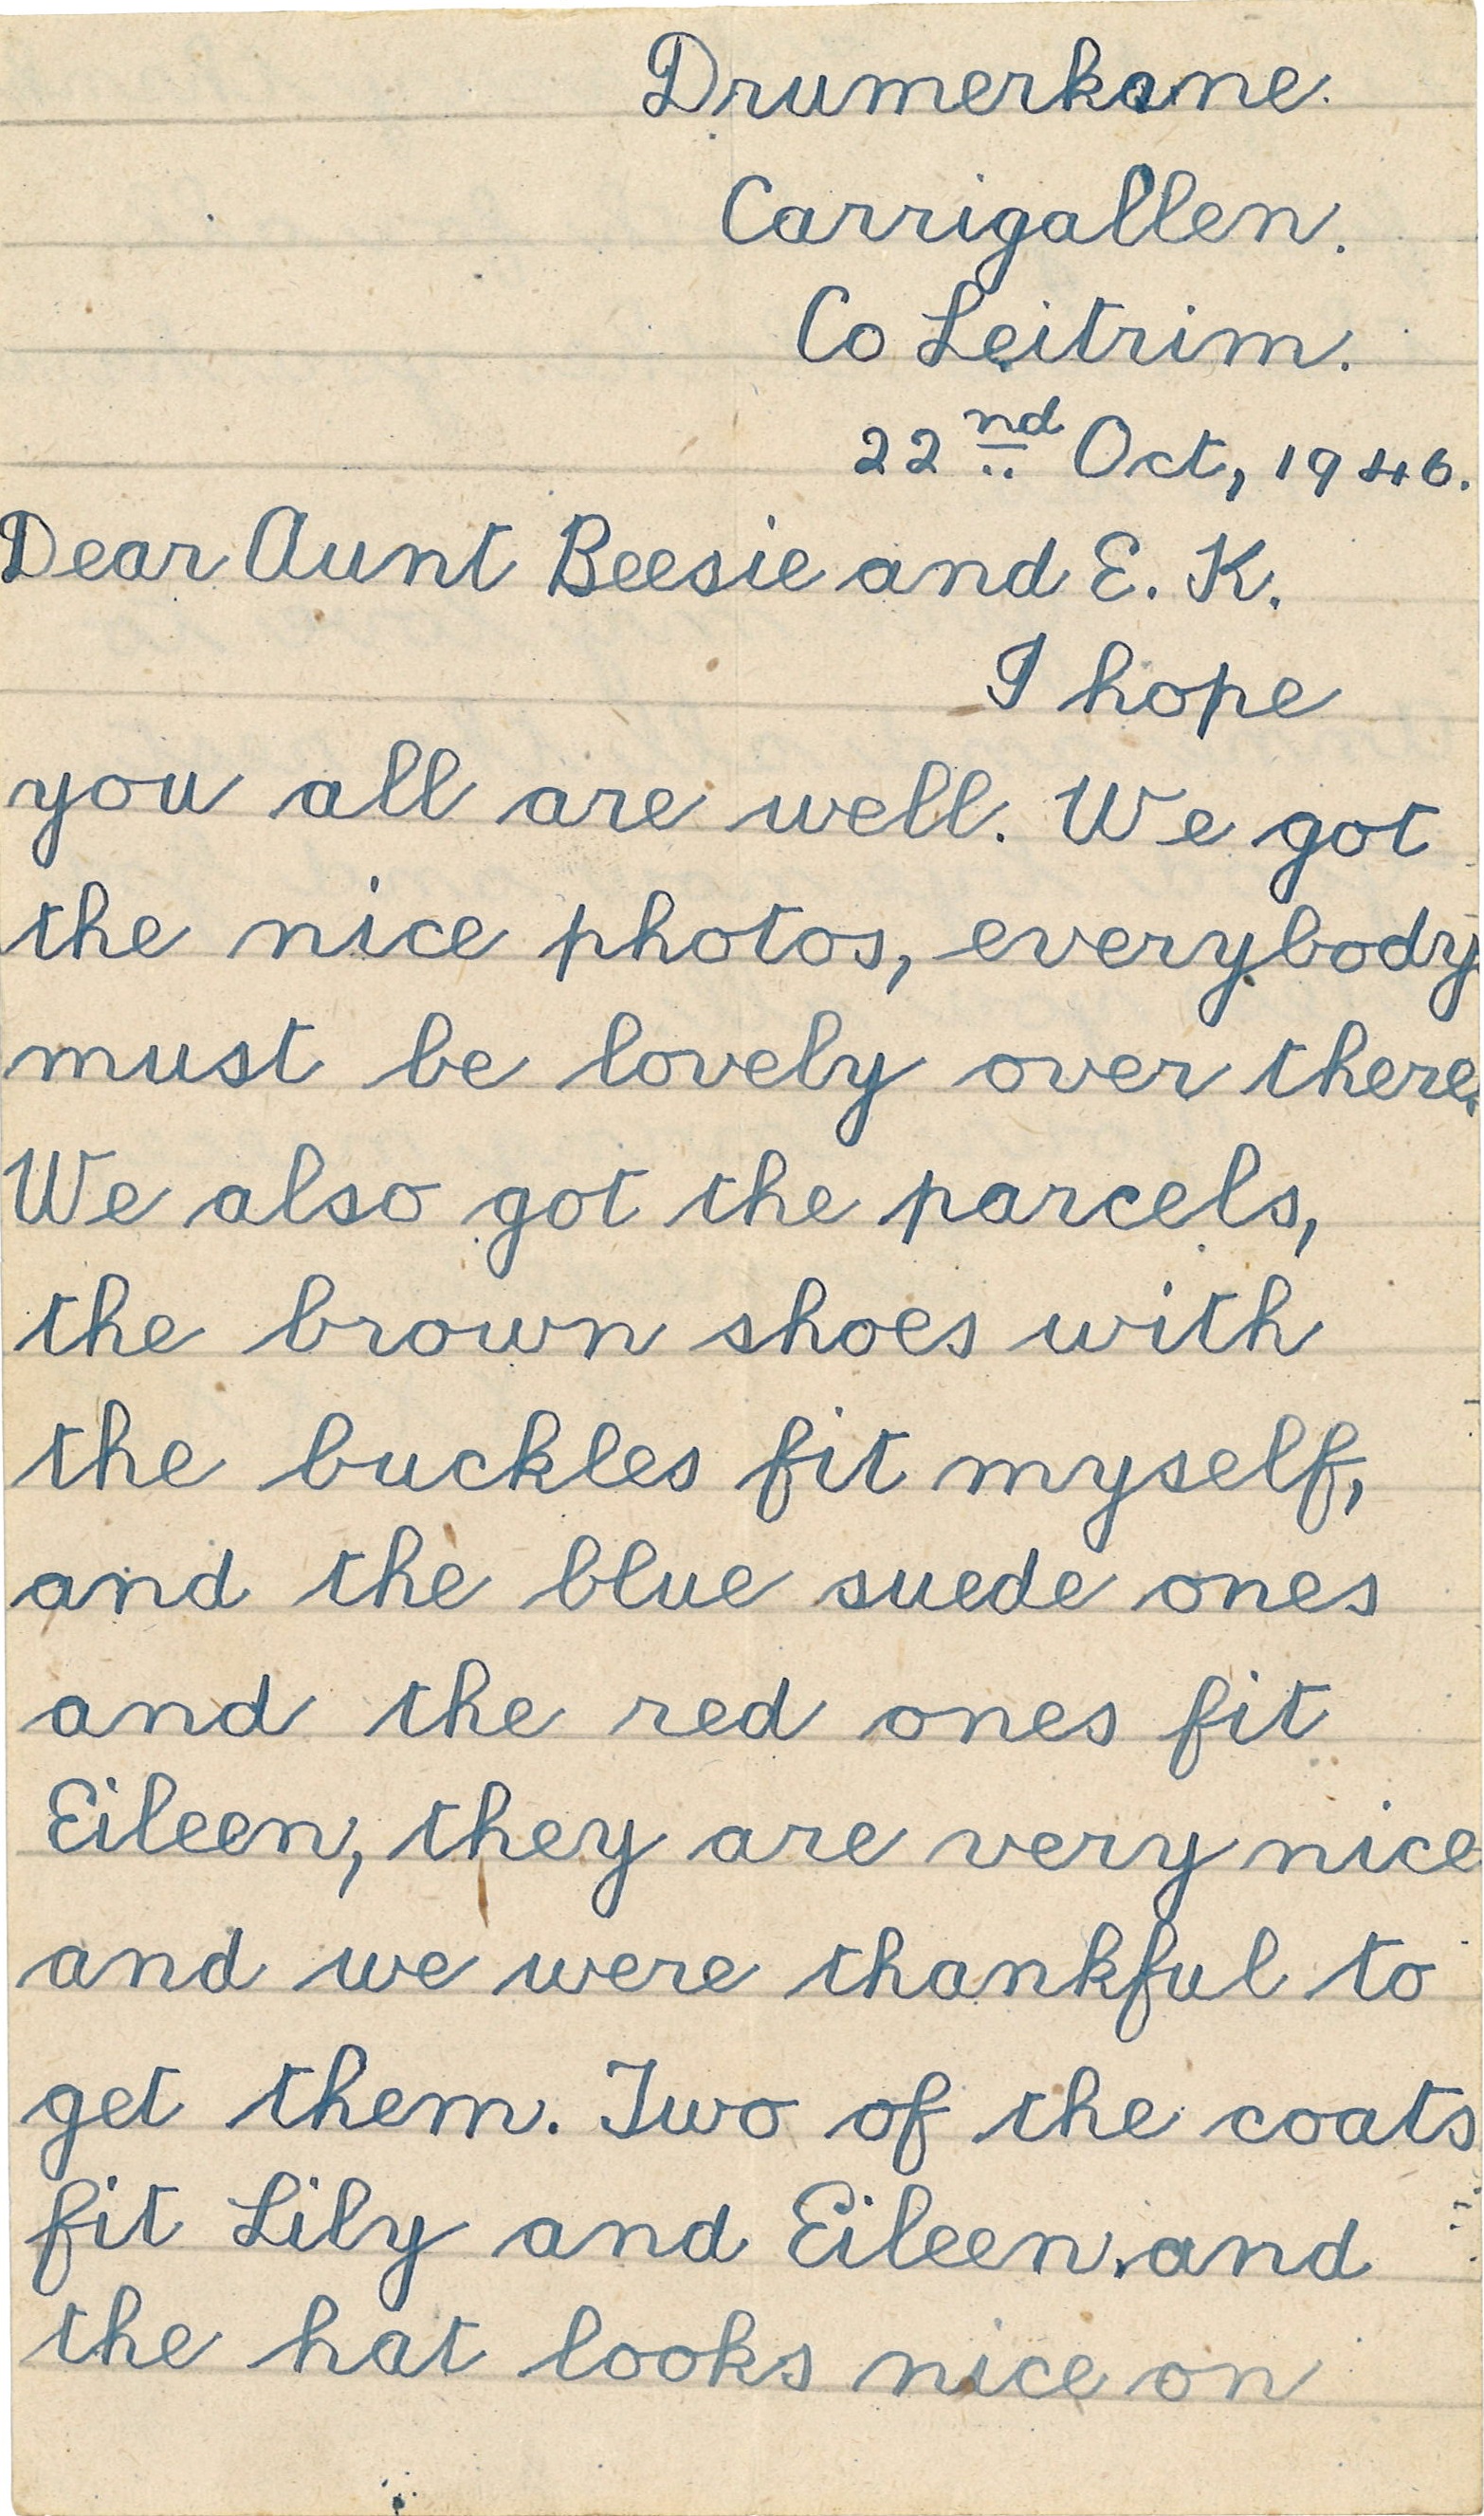 Drumerkane.
Carrigallen.
Co Leitrim.
22nd Oct, 1946.
Dear Aunt Beesie and E. K.
I hope
you all are well. We got
the nice photos, everybody
must be lovely over there.
We also got the parcels,
the brown shoes with
the buckles fit myself,
and the blue suede ones
and the red ones fit
Eileen, they are very nice
and we were thankful to
get them. Two of the coats
fit Lily and Eileen, and
the hat looks nice on